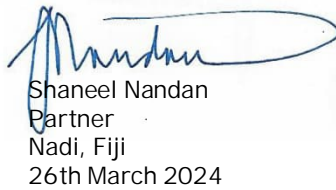 Shaneel Nandan
Partner
Nadi, Fiji
26th March 2024